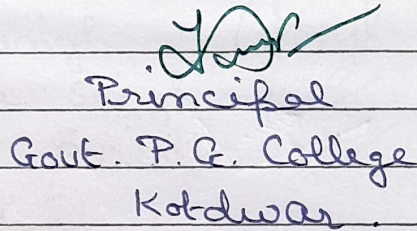 Principal
Govt. P. G. College
Kotdwar.